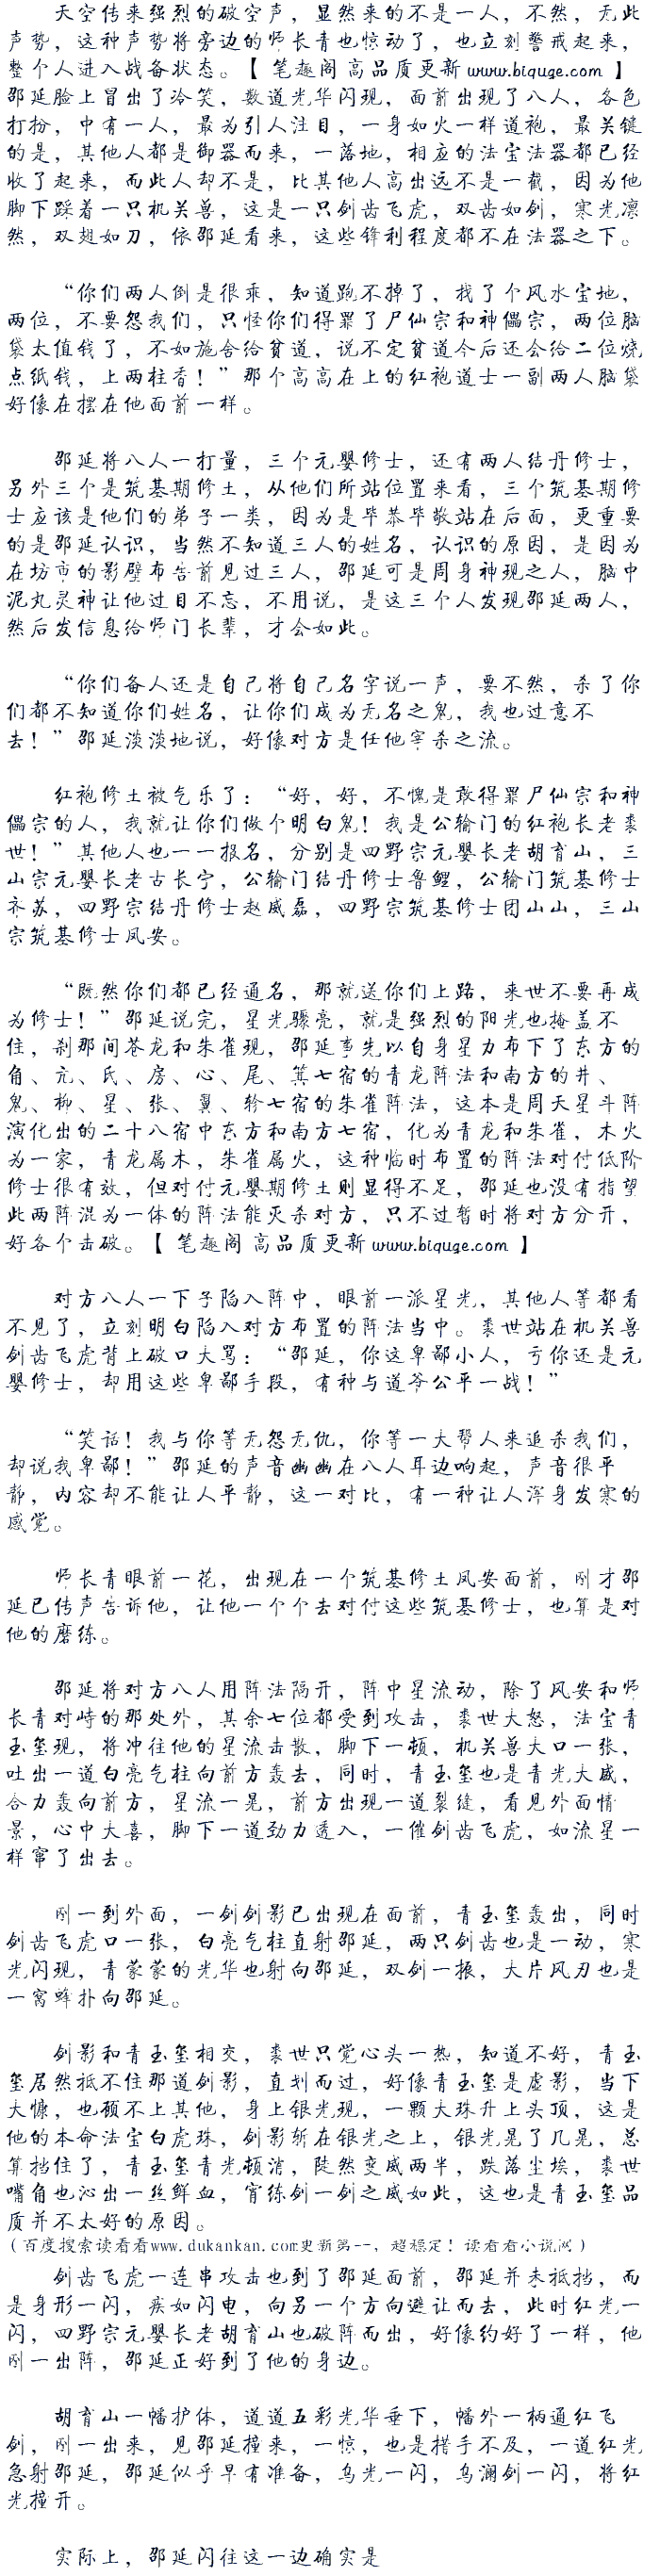 天空传来强烈的破空声，显然来的不是一人，不然，无此
声势，这种声势将旁边的师长青也惊动了，也立刻警戒起来，
整个人进入战备状态。【 笔趣阁 高品质更新 www.biquge.com 】
邵延脸上冒出了冷笑，数道光华闪现，面前出现了八人，各色
打扮，中有一人，最为引人注目，一身如火一样道袍，最关键
的是，其他人都是御器而来，一落地，相应的法宝法器都已经
收了起来，而此人却不是，比其他人高出远不是一截，因为他
脚下踩着一只机关兽，这是一只剑齿飞虎，双齿如剑，寒光凛
然，双翅如刀，依邵延看来，这些锋利程度都不在法器之下。
“你们两人倒是很乖，知道跑不掉了，找了个风水宝地，
两位，不要怨我们，只怪你们得罪了尸仙宗和神儡宗，两位脑
袋太值钱了，不如施舍给贫道，说不定贫道今后还会给二位烧
点纸钱，上两柱香！”那个高高在上的红袍道士一副两人脑袋
好像在摆在他面前一样。
邵延将八人一打量，三个元婴修士，还有两人结丹修士，
另外三个是筑基期修士，从他们所站位置来看，三个筑基期修
士应该是他们的弟子一类，因为是毕恭毕敬站在后面，更重要
的是邵延认识，当然不知道三人的姓名，认识的原因，是因为
在坊市的影壁布告前见过三人，邵延可是周身神现之人，脑中
泥丸灵神让他过目不忘，不用说，是这三个人发现邵延两人，
然后发信息给师门长辈，才会如此。
“你们备人还是自己将自己名字说一声，要不然，杀了你
们都不知道你们姓名，让你们成为无名之鬼，我也过意不
去！”邵延淡淡地说，好像对方是任他宰杀之流。
红袍修士被气乐了：“好，好，不愧是敢得罪尸仙宗和神
儡宗的人，我就让你们做个明白鬼！我是公输门的红袍长老裘
世！”其他人也一一报名，分别是四野宗元婴长老胡育山，三
山宗元婴长老古长宁，公输门结丹修士鲁鲤，公输门筑基修士
齐苏，四野宗结丹修士赵威磊，四野宗筑基修士团山山，三山
宗筑基修士凤安。
“既然你们都已经通名，那就送你们上路，来世不要再成
为修士！”邵延说完，星光骤亮，就是强烈的阳光也掩盖不
住，刹那间苍龙和朱雀现，邵延事先以自身星力布下了东方的
角、亢、氏、房、心、尾、箕七宿的青龙阵法和南方的井、
鬼、柳、星、张、翼、轸七宿的朱雀阵法，这本是周天星斗阵
演化出的二十八宿中东方和南方七宿，化为青龙和朱雀，木火
为一家，青龙属木，朱雀属火，这种临时布置的阵法对付低阶
修士很有效，但对付元婴期修士则显得不足，邵延也没有指望
此两阵混为一体的阵法能灭杀对方，只不过暂时将对方分开，
好各个击破。【 笔趣阁 高品质更新 www.biquge.com 】
对方八人一下子陷入阵中，眼前一派星光，其他人等都看
不见了，立刻明白陷入对方布置的阵法当中。裘世站在机关兽
剑齿飞虎背上破口大骂：“邵延，你这卑鄙小人，亏你还是元
婴修士，却用这些卑鄙手段，有种与道爷公平一战！”
“笑话！我与你等无怨无仇，你等一大帮人来追杀我们，
却说我卑鄙！”邵延的声音幽幽在八人耳边响起，声音很平
静，内容却不能让人平静，这一对比，有一种让人浑身发寒的
感觉。
师长青眼前一花，出现在一个筑基修士凤安面前，刚才邵
延已传声告诉他，让他一个个去对付这些筑基修士，也算是对
他的磨练。
邵延将对方八人用阵法隔开，阵中星流动，除了风安和师
长青对峙的那处外，其余七位都受到攻击，裘世大怒，法宝青
玉玺现，将冲往他的星流击散，脚下一顿，机关兽大口一张，
吐出一道白亮气柱向前方轰去，同时，青玉玺也是青光大盛，
合力轰向前方，星流一晃，前方出现一道裂缝，看见外面情
景，心中大喜，脚下一道劲力透入，一催剑齿飞虎，如流星一
样窜了出去。
刚一到外面，一剑剑影已出现在面前，青玉玺轰出，同时
剑齿飞虎口一张，白亮气柱直射邵延，两只剑齿也是一动，寒
光闪现，青蒙蒙的光华也射向邵延，双剑一振，大片风刃也是
一窝蜂扑向邵延。
剑影和青玉玺相交，裘世只觉心头一热，知道不好，青玉
玺居然抵不住那道剑影，直划而过，好像青玉玺是虚影，当下
大慷，也顾不上其他，身上银光现，一颗大珠升上头顶，这是
他的本命法宝白虎珠，剑影斩在银光之上，银光晃了几晃，总
算挡住了，青玉玺青光顿消，陡然变成两半，跌落尘埃，裘世
嘴角也沁出一丝鲜血，宵练剑一剑之威如此，这也是青玉玺品
质并不太好的原因。
（百度搜索读看看www.dukankan.com更新第--，超稳定！读看看小说网）
剑齿飞虎一连串攻击也到了邵延面前，邵延并未抵挡，而
是身形一闪，疾如闪电，向另一个方向避让而去，此时红光一
闪，四野宗元婴长老胡育山也破阵而出，好像约好了一样，他
刚一出阵，邵延正好到了他的身边。
胡育山一幡护体，道道五彩光华垂下，幡外一柄通红飞
剑，刚一出来，见邵延撞来，一惊，也是措手不及，一道红光
急射邵延，邵延似乎早有准备，乌光一闪，乌澜剑一闪，将红
光撞开。
实际上，邵延闪往这一边确实是